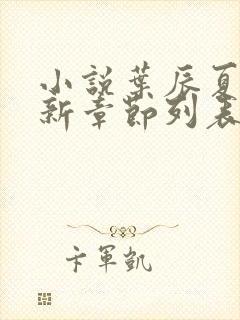 小說葉辰夏
新章節列表
卞軍凱